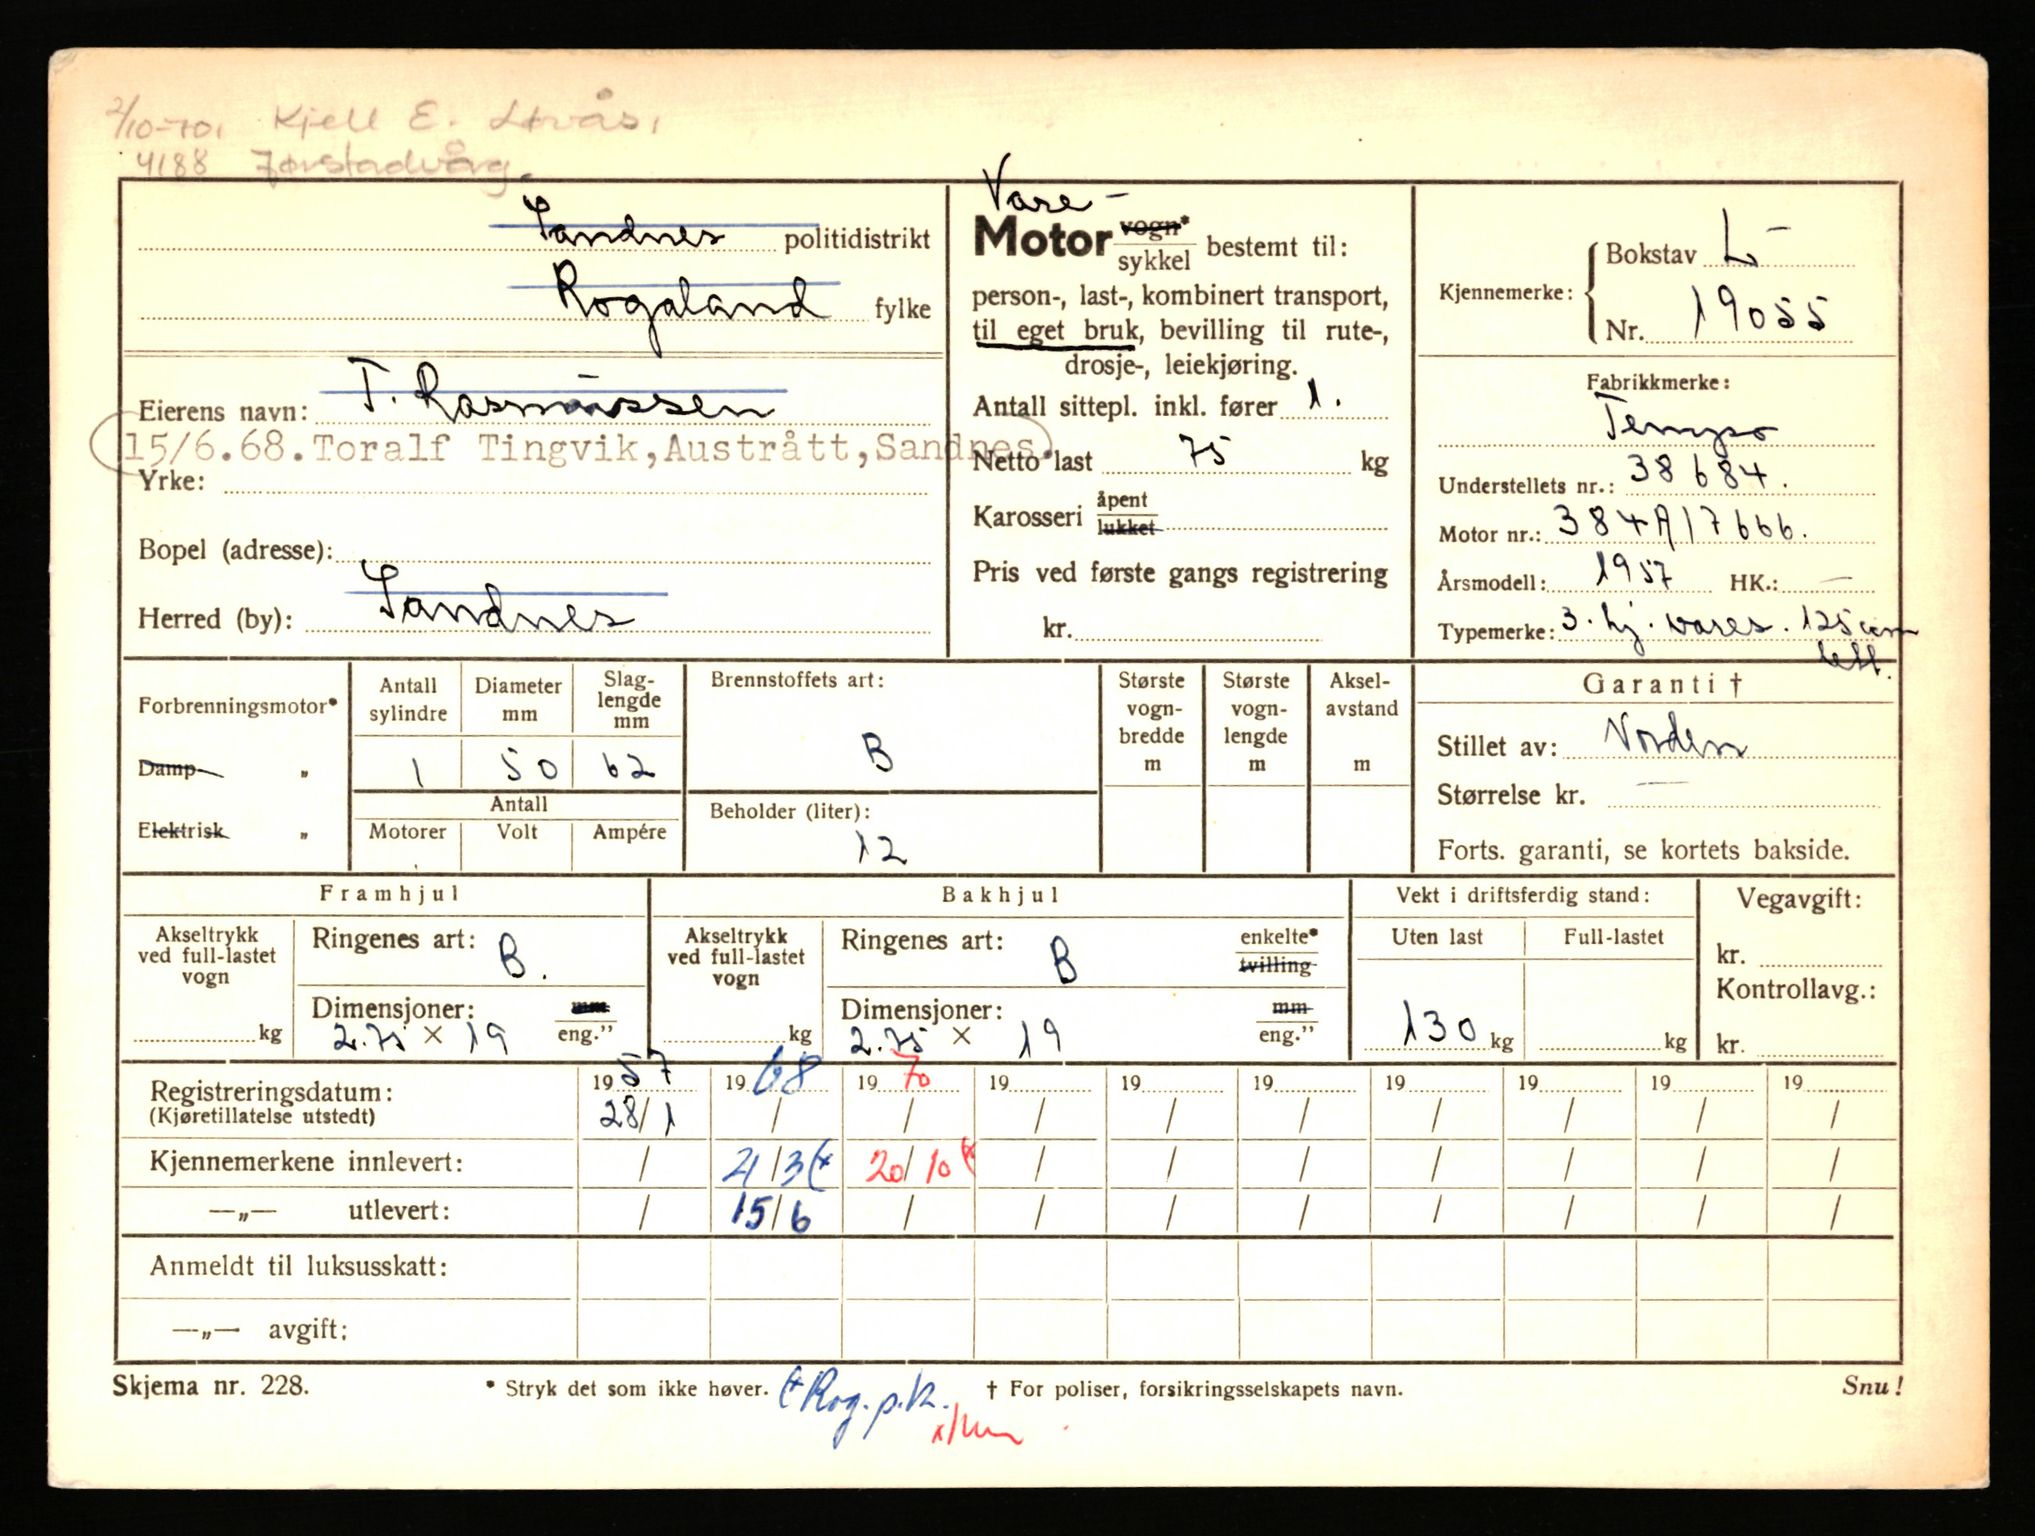 2/10-70, Kjell E.
4188 Jørstadvåg.
Sandnes politidistrikt
Rogaland fylke
Eierens navn: T. Rasmussen
15/6.68. Toralf Tingvik, Austrått, Sandnes.
Yrke:
Bopel (adresse):
Herred (by): Sandnes
Vare-
Motor vogn* / sykkel bestemt til:
person-, last-, kombinert transport,
til eget bruk, bevilling til rute-,
drosje-, leiekjøring.
Antall sittepl. inkl. fører 1.
Netto last 75 kg
Karosseri åpent / lukket
Pris ved første gangs registrering
kr.
Kjennemerke: Bokstav L-
Nr. 19055
Fabrikkmerke:
Tempo
Understellets nr.: 38684.
Motor nr.: 384A17666.
Årsmodell: 1957 HK.: —
Typemerke: 3. hj. vares. 125 ccm
lett.
Forbrenningsmotor*
Damp- „
Elektrisk „
Antall sylindre
Diameter mm
Slag-lengde mm
1 50 62
Antall
Motorer Volt Ampére
Brennstoffets art:
B
Beholder (liter):
12
Største vogn-bredde m
Største vogn-lengde m
Aksel-avstand m
Garanti †
Stillet av: Norden
Størrelse kr. —
Forts. garanti, se kortets bakside.
Framhjul
Akseltrykk ved full-lastet vogn
kg
Ringenes art: B.
Dimensjoner: mm / eng."
2.75 × 19
Bakhjul
Akseltrykk ved full-lastet vogn
kg
Ringenes art: B enkelte* / tvilling
Dimensjoner: mm / eng."
2.75 × 19
Vekt i driftsferdig stand:
Uten last Full-lastet
130 kg kg
Vegavgift:
kr.
Kontrollavg.:
kr.
Registreringsdatum: 1957 1968 1970 19 19 19 19 19 19 19
(Kjøretillatelse utstedt) 28/1 / / / / / / / / /
Kjennemerkene innlevert: / 21/3 (x 20/10 (x / / / / / / /
—„— utlevert: / 15/6 / / / / / / / /
Anmeldt til luksusskatt:
—„— avgift:
Skjema nr. 228.
* Stryk det som ikke høver.
(x Rog. p.k.
† For poliser, forsikringsselskapets navn.
Snu!